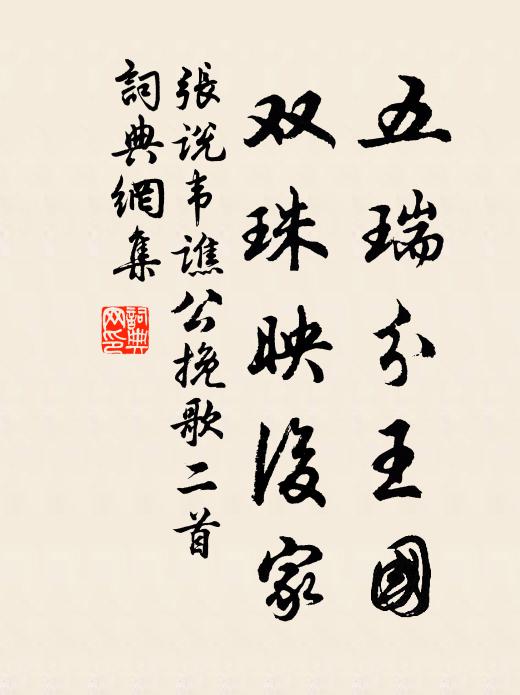 五瑞分王國
双珠映後家
張说韦譙公挽歌二首
詞典網集
詞典网印